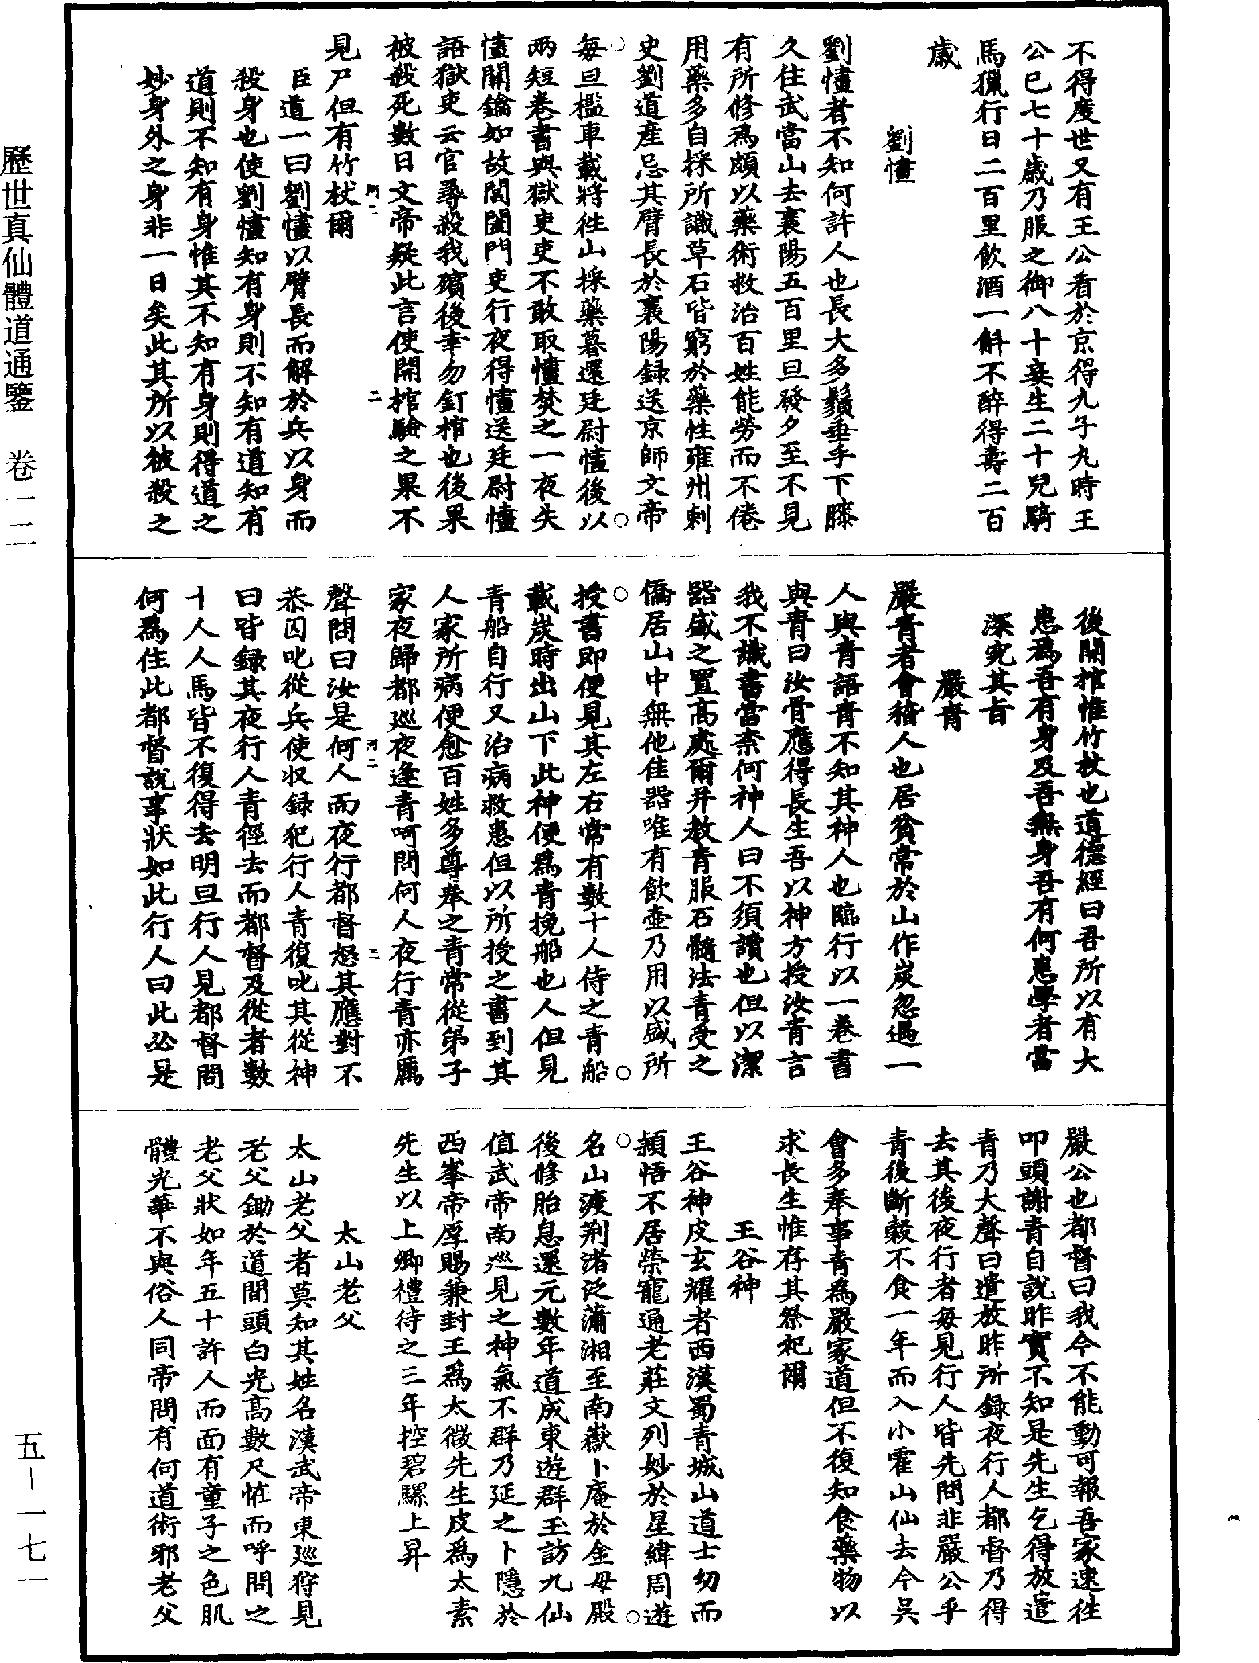 不得度世又有王公看於京得九子丸時王
公已七十歲乃服之御八十妾生二十兒騎
馬獵行日二百里飲酒一斛不醉得壽二百
歲
劉𢥠
劉𢥠者不知何許人也長大多鬚垂手下膝
久住武當山去襄陽五百里旦發夕至不見
有所修為頗以藥術救治百姓能勞而不倦
用藥多自採所識草石皆窮於藥性雍州刺
史劉道產忌其臂長於襄陽錄送京師文帝
每旦檻車載將往山採藥暮還廷尉𢥠後以
兩短卷書與獄吏吏不敢取𢥠焚之一夜失
𢥠關鑰如故閶闔門吏行夜得𢥠送廷尉𢥠
語獄吏云官尋殺我殯後幸勿釘棺也後果
被殺死數日文帝疑此言使開棺驗之果不
見尸但有竹杖爾
臣道一曰劉𢥠以臂長而解於兵以身而
殺身也使劉𢥠知有身則不知有道知有
道則不知有身惟其不知有身則得道之
妙身外之身非一日矣此其所以被殺之
後開棺惟竹杖也道德經曰吾所以有大
患為吾有身及吾無身吾有何患學者當
深究其旨
嚴青
嚴青者會稽人也居貧常於山作炭忽遇一
人與青語青不知其神人也臨行以一卷書
與青曰汝骨應得長生吾以神方授汝青言
我不識書當柰何神人曰不須讀也但以潔
器盛之置高處爾并教青服石髓法青受之
僑居山中無他佳器唯有飲壺乃用以盛所
授書即便見其左右常有數十人侍之青船
載炭時出山下此神便為青挽船也人但見
青船自行又治病救患但以所授之書到其
人家所病便愈百姓多尊奉之青常從弟子
家夜歸都巡夜逢青呵問何人夜行青亦厲
聲問曰汝是何人而夜行都督怒其應對不
恭因叱從兵使収錄犯行人青復叱其從神
曰皆錄其夜行人青徑去而都督及從者數
十人人馬皆不復得去明旦行人見都督問
何為住此都督說事狀如此行人曰此必是
嚴公也都督曰我今不能動可報吾家速往
叩頭謝青自說昨實不知是先生乞得放遣
青乃大聲曰遣放昨所錄夜行人都督乃得
去其後夜行者每見行人皆先問非嚴公乎
青後斷穀不食一年而入小霍山仙去今吳
會多奉事青為嚴家道但不復知食藥物以
求長生惟存其祭祀爾
王谷神
王谷神皮玄耀者西漢蜀青城山道士幼而
頴悟不居榮寵通老莊文列妙於星緯周遊
名山渡荊渚泛瀟湘至南嶽卜庵於金母殿
後修胎息還元數年道成東遊群玉訪九仙
值武帝南巡見之神氣不群乃延之卜隱於
西峯帝厚賜兼封王為太微先生皮為太素
先生以上卿禮待之三年控碧騾上昇
太山老父
太山老父者莫知其姓名漢武帝東巡狩見
老父鋤於道間頭白光高數尺怪而呼問之
老父狀如年五十許人而面有童子之色肌
體光華不與俗人同帝問有何道術邪老父
歷世真仙體道通鑒 卷一二
五—一七一